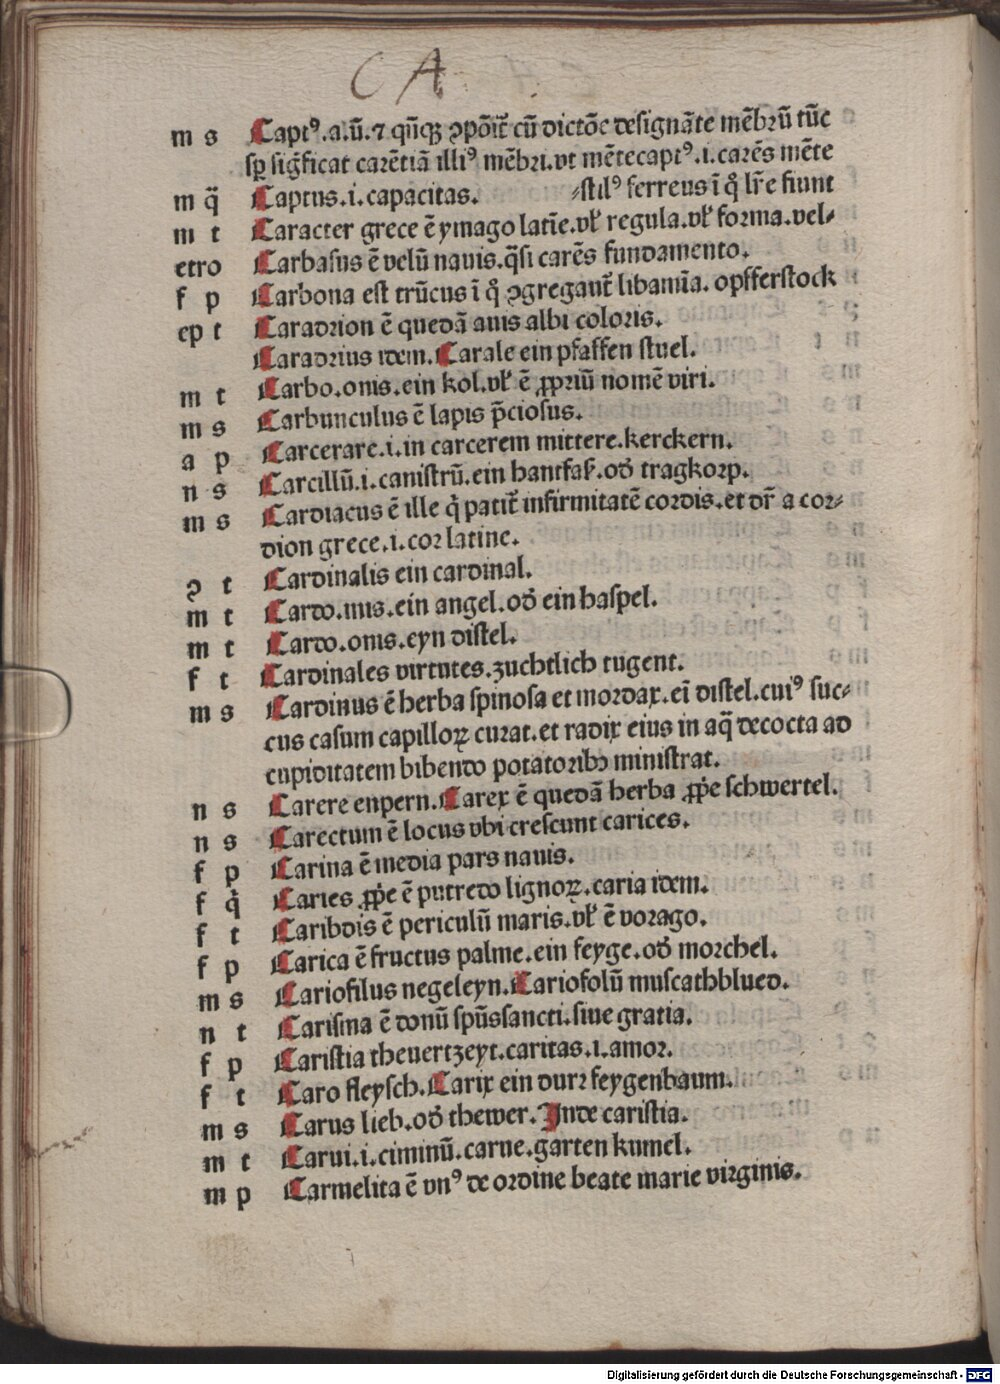 CA
m s Captꝰ.a.ū.⁊ qn̄qꝫ ↄpōit̄ cū dictōe designāte mēbrū tūc
sꝑ sig̃ficat carētiā illiꝰ mēbri.vt mētecaptꝰ.i.carēs mēte
m q̈ Captus.i.capacitas. ⸗stilꝰ ferreus ī q̊ lr̄e fiunt
m t Caracter grece ē ymago latīe.vl̕ regula.vl̕ forma.vel⸗
etro Carbasus ē velū nauis.q̄si carēs fundamento.
f p Carbona est trūcus ī q̊ ↄgregant̄ libamīa. opfferstock
ep t Caradrion ē quedā auis albi coloris.
Caradrius idem. Carale ein pfaffen stuel.
m t Carbo.onis.ein kol.vl̕ ē ꝓpriū nomē viri.
m s Carbunculus ē lapis p̄ciosus.
a p Carcerare.i.in carcerem mittere.kerckern.
n s Carcillū.i.canistrū.ein hantfaß.od̕ tragkorp.
m s Cardiacus ē ille q̇ patit̄ infirmitatē cordis.et dr̄ a cor⸗
dion grece.i.cor latine.
ↄ t Cardinalis ein cardinal.
m t Cardo.inis.ein angel.od̕ ein haspel.
m t Cardo.onis.eyn distel.
f t Cardinales virtutes.zuchtlich tugent.
m s Cardinus ē herba spinosa et mordax.eī distel.cuiꝰ suc⸗
cus casum capilloꝝ curat.et radix eius in aq̄ decocta ad
cupiditatem bibendo potatoribꝫ ministrat.
n s Carere enpern. Carex ē quedā herba ꝓṗe schwertel.
n s Carectum ē locus vbi crescunt carices.
f p Carina ē media pars nauis.
f q̇ Caries ꝓṗe ē putredo lignoꝝ.caria idem.
f t Caribdis ē periculū maris.vl̕ ē vorago.
f p Carica ē fructus palme.ein feyge.od̕ morchel.
m s Cariofilus negeleyn. Cariofolū muscathblued.
n t Carisma ē donū spūssancti.siue gratia.
f p Caristia theuertzeyt.caritas.i.amor.
f t Caro fleysch. Carix ein durr feygenbaum.
m s Carus lieb.od̕ thewer. Inde caristia.
m t Carui.i.ciminū.carue.garten kumel.
m p Carmelita ē vnꝰ de ordine beate marie virginis.
Digitalisierung gefördert durch die Deutsche Forschungsgemeinschaft - DFG